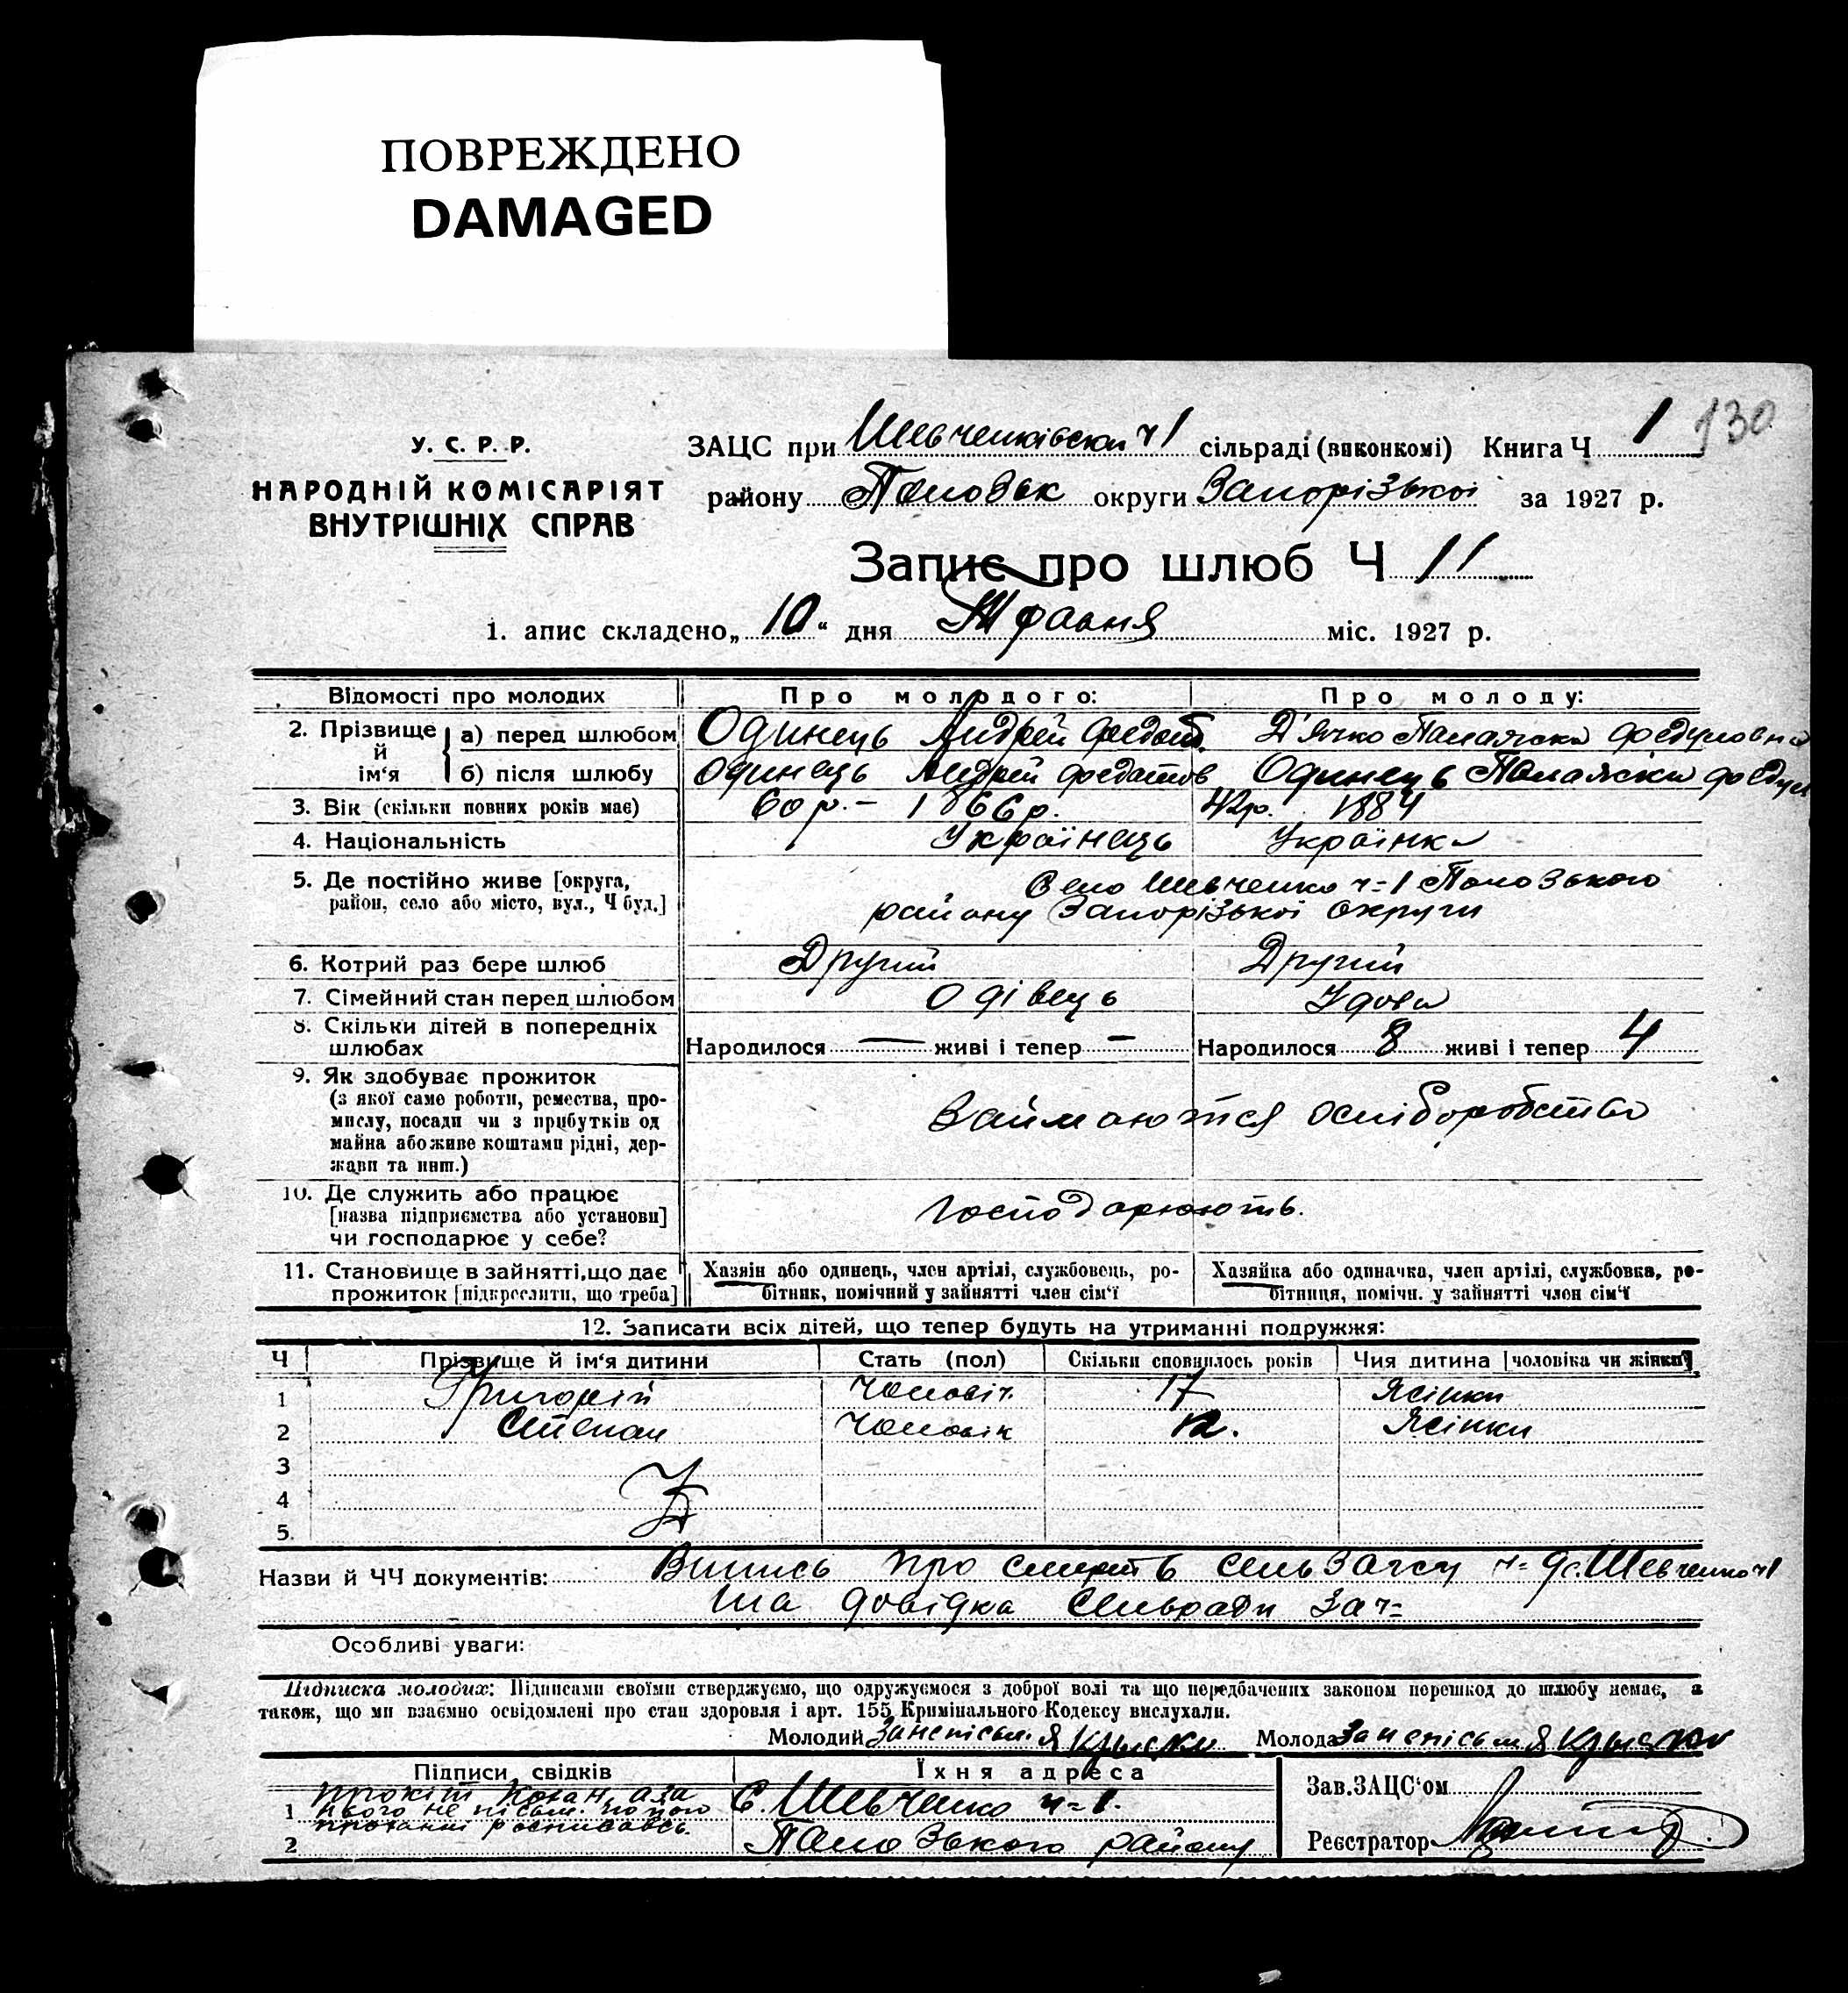 ПОВРЕЖДЕНО
DAMAGED
130
У. С. Р. Р.
НАРОДНІЙ КОМІСАРІЯТ
ВНУТРІШНІХ СПРАВ
ЗАЦС при Шевченківскій ч 1 сільраді (виконкомі) Книга Ч 1
району Положськ округи Запорізької за 1927 р.
Запис про шлюб Ч 11
1. апис складено „ 10 “ дня Травня міс. 1927 р.
Відомості про молодих Про молодого: Про молоду:
2. Прізвище й ім‘я
а) перед шлюбом Одинець Андрей Федот. Д'ячко Палажка Федуловна
б) після шлюбу Одинець Андрей Федотов Одинець Палажка Федул
3. Вік (скільки повних років має) 60 р. – 1866 р. 42 р. 1884
4. Національність Українець Українка
5. Де постійно живе [округа, Село Шевченко ч=1 Положського
район, село або місто, вул., Ч буд.] району Запорізької округи
6. Котрий раз бере шлюб Другий Другий
7. Сімейний стан перед шлюбом Одівець Удова
8. Скільки дітей в попередніх
шлюбах Народилося — живі і тепер – Народилося 8 живі і тепер 4
9. Як здобуває прожиток
(з якої саме роботи, ремества, про-
мислу, посади чи з прибутків од Займаются хліборобством
майна або живе коштами рідні, дер-
жави та инш.)
10. Де служить або працює
[назва підприємства або установи] Господарюють.
чи господарює у себе?
11. Становище в зайнятті, що дає Хазяїн або одинець, член артілі, службовець, ро- Хазяйка або одиначка, член артілі, службовка, ро-
прожиток [підкреслити, що треба] бітник, помічний у зайнятті член сім‘ї бітниця, помічн. у зайнятті член сім‘ї
12. Записати всіх дітей, що тепер будуть на утриманні подружжя:
Ч Прізвище й ім‘я дитини Стать (пол) Скільки сповнилось років Чия дитина [чоловіка чи жінки]
1 Григорій Чоловіч. 17 Жінки
2 Степан Чоловік 12. Жінки
3
4
5.
Назви й ЧЧ документів: Випись про смерть сельЗагсу ч= 9 с. Шевченко ч 1
та довідка Сельради За ч=
Особливі уваги:
Підписка молодих: Підписами своїми стверджуємо, що одружуємося з доброї волі та що передбачених законом перешкод до шлюбу немає, а
також, що ми взаємно освідомлені про стан здоровля і арт. 155 Кримінального Кодексу вислухали.
Молодий Молода
Підписи свідків Їхня адреса
1 С. Шевченко ч=1.
2 Положського району
Зав.ЗАЦС‘ом
Реєстратор